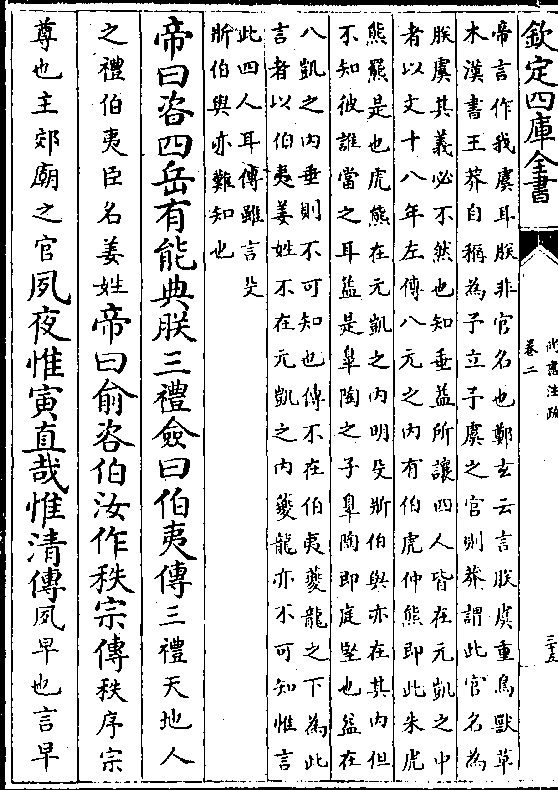 欽定四庫全書
尚書注疏
卷二
三十五
帝言作我虞耳朕非官名也鄭玄云言朕虞重鳥獸草
木漢書王莽自稱為予立予虞之官則莽謂此官名為
朕虞其義必不然也知垂益所讓四人皆在元凱之中
者以文十八年左傳八元之內有伯虎仲熊即此朱虎
熊羆是也虎熊在元凱之內明殳斨伯與亦在其內但
不知彼誰當之耳益是臯陶之子臯陶即庭堅也益在
八凱之內垂則不可知也傳不在伯夷夔龍之下為此
言者以伯夷姜姓不在元凱之內夔龍亦不可知惟言
此四人耳傳雖言殳
斨伯與亦難知也
帝曰咨四岳有能典朕三禮僉曰伯夷傳三禮天地人
之禮伯夷臣名姜姓帝曰俞咨伯汝作秩宗傳秩序宗
尊也主郊廟之官夙夜惟寅直哉惟清傳夙早也言早